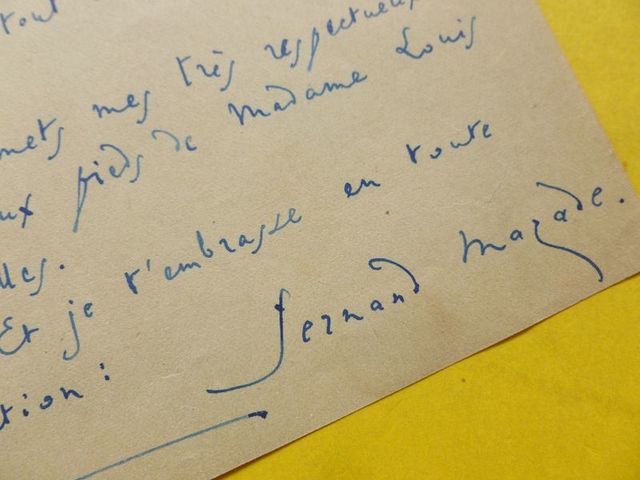 tout
mets mes très respectueux
ux pieds de Madame Louis
lles.
Et je t'embrasse en toute
ction :
Fernand Mazade.